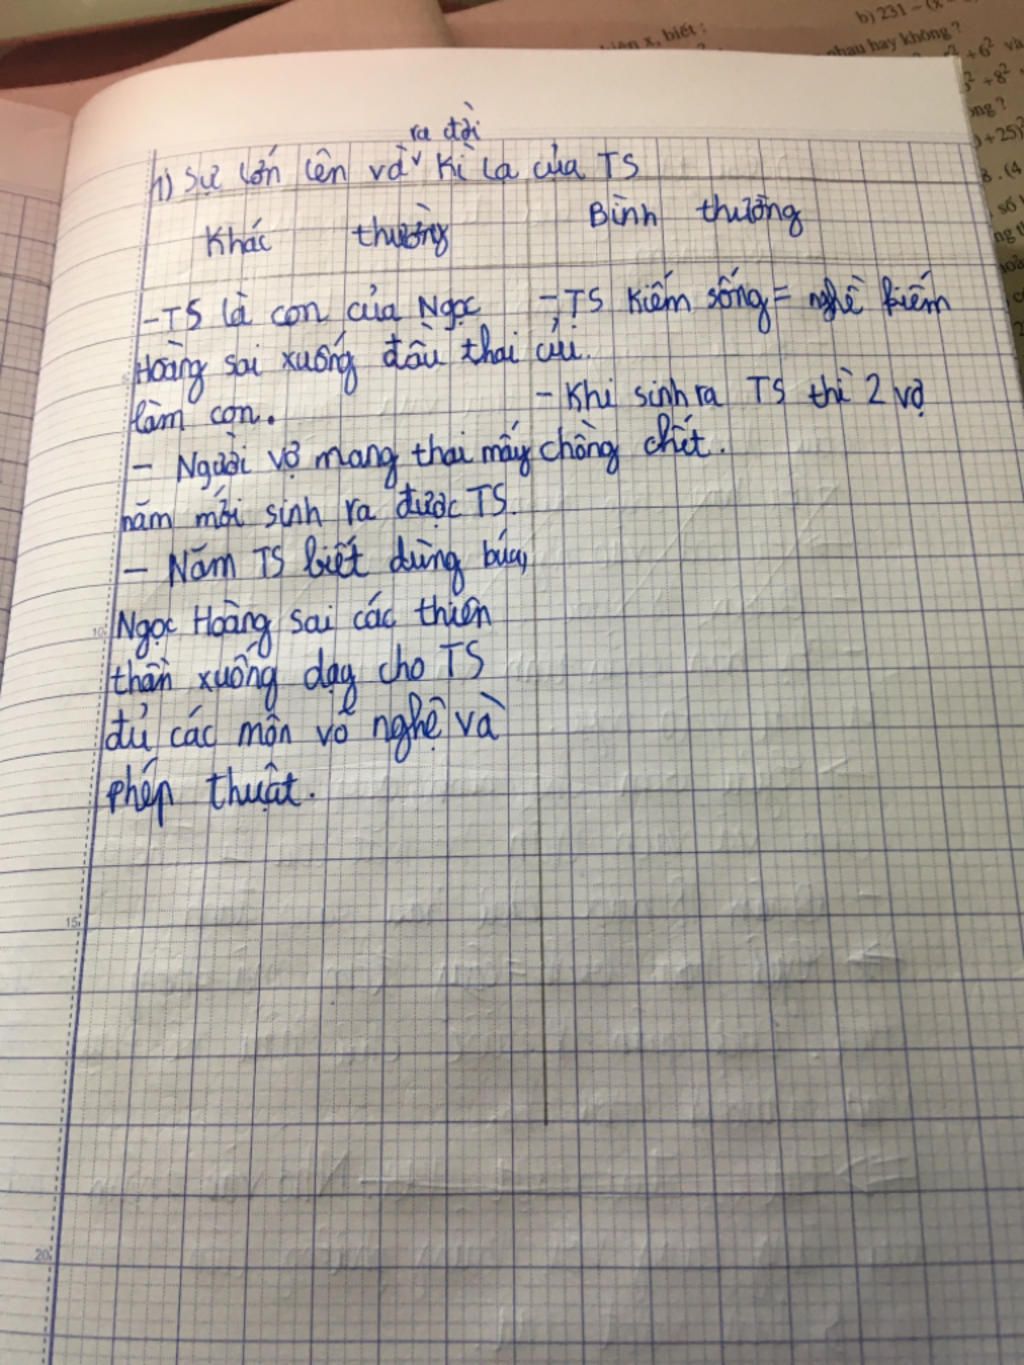 b) 231 - (x -
biết :
nhau hay không ?
+ 6² và
+ 8²
+ 25)²
8 . (4
số
ra đời
1) Sự lớn lên và ˅ Kì lạ của TS
Khác thường
Bình thường
- TS là con của Ngọc
Hoàng sai xuống đầu thai
làm con.
- Người vợ mang thai mấy
năm mới sinh ra được TS.
- Năm TS biết dùng búa,
Ngọc Hoàng sai các thiên
thần xuống dạy cho TS
đủ các môn võ nghệ và
phép thuật.
- TS Kiếm sống = nghề kiếm
củi.
- Khi sinh ra TS thì 2 vợ
chồng chết.
10
15
20